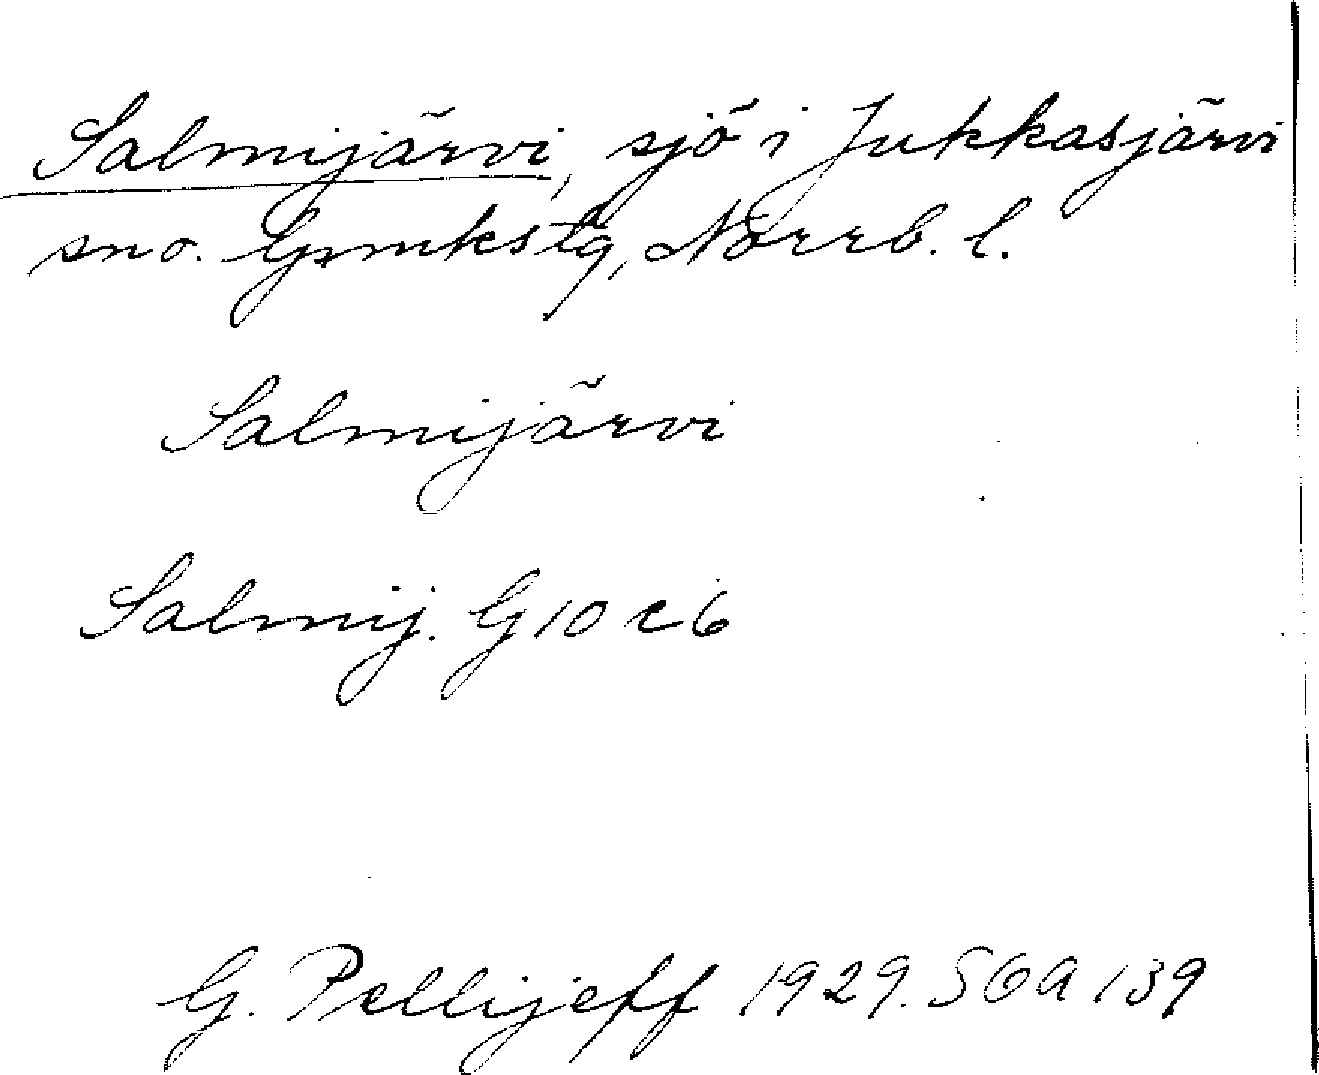 Salmijärvi, sjö i Jukkasjärvi
sno. Gjmkstg, Norrb. l.
Salmijärvi
Salmij. G 10 c 6
G. Pellijeff 1929. SOA 139